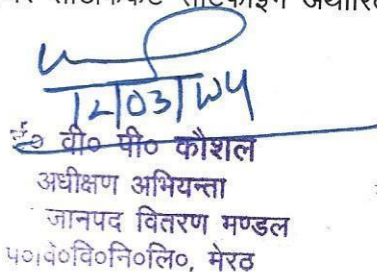 12/03/2024
ई० वी० पी० कौशल
अधीक्षण अभियन्ता
जानपद वितरण मण्डल
प०वि०वि०नि०लि०, मेरठ